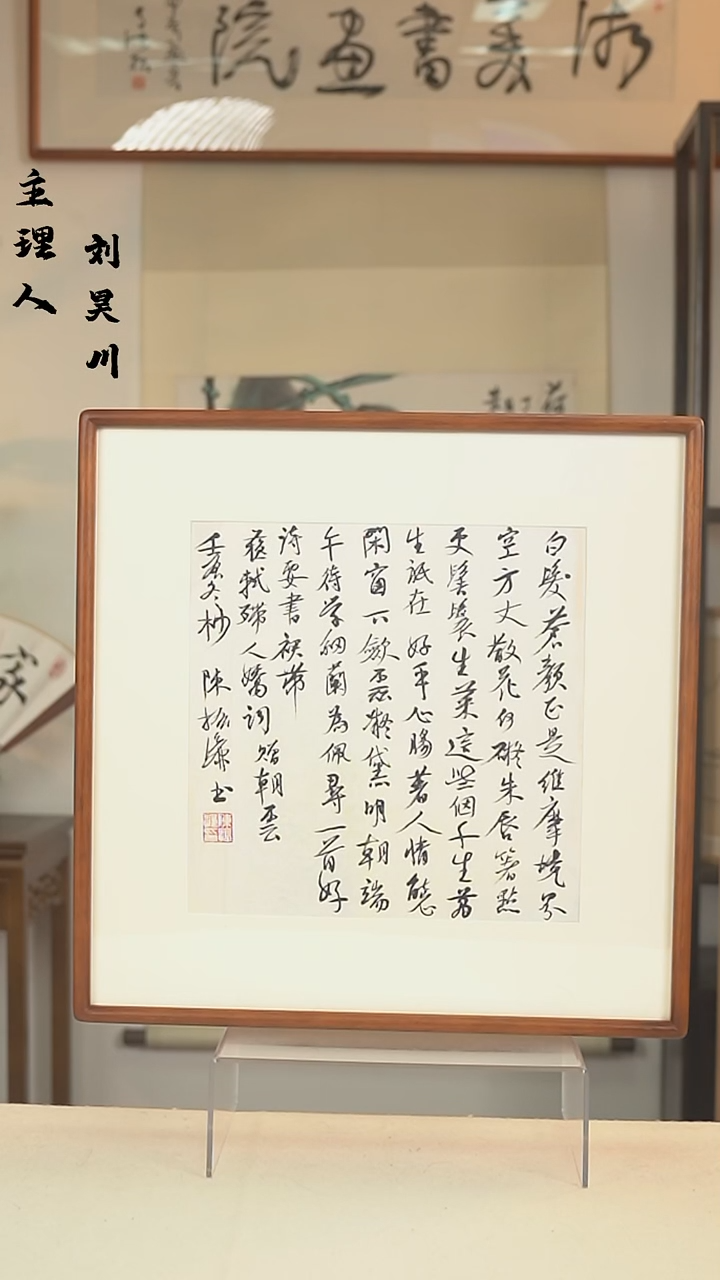 美書畫院
主理人
刘昊川
白髮蒼顏正是維摩境界
空方丈散花何礙朱唇箸點
更髻鬟生菜這些個千生萬
生祇在好事心腸著人情態
閑窗下斂雲凝黛明朝端
午待學紉蘭為佩尋一首好
詩要書裙帶
蘇軾殢人嬌詞贈朝雲
壬寅冬杪 陳 書